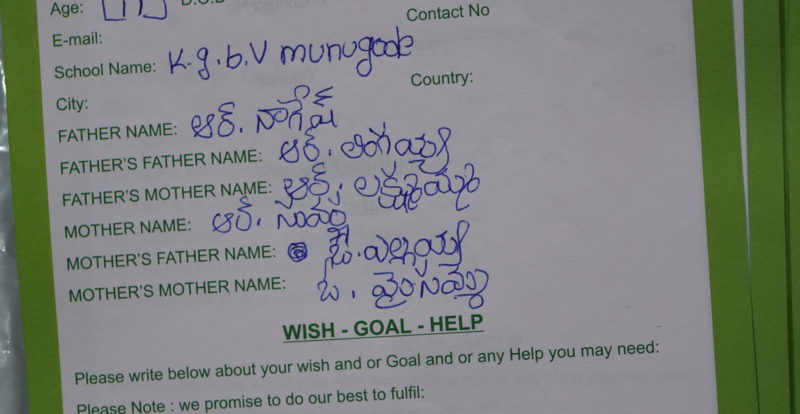 Age: 
Contact No
E-mail:
School Name: K.g.b.V munugode
City: Country:
FATHER NAME: ఆర్. నాగేష్
FATHER'S FATHER NAME: ఆర్. లింగయ్య
FATHER'S MOTHER NAME: ఆర్. లక్ష్మమ్మ
MOTHER NAME: ఆర్.
MOTHER'S FATHER NAME: ఓ. ఎల్లయ్య
MOTHER'S MOTHER NAME: ఓ.
WISH - GOAL - HELP
Please write below about your wish and or Goal and or any Help you may need:
Please Note : we promise to do our best to fulfil: